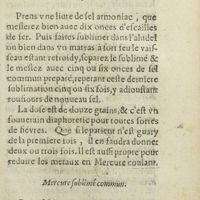 Prens vne liure de sel armoniac, que
meslerez bien auec dix onces d'escailles
de fer. Puis faites sublimer dans l'aludel
ou bien dans vn matras à fort feu le vais-
seau estant refroidy, separez le sublimé &
le meslez auec cinq ou six onces de sel
commun preparé, reperant ceste derniere
sublimation cinq ou six fois, y adioustant
tousiours de nouueau sel.
La dose est de douze grains, & c'est vn
souuerain diaphoretic pour toutes sortes
de fievres. Que si le patient n'est guary
de la premiere fois, il en faudra donner
deux ou trois fois. Il est aussi propre pour
reduire les metaux en Mercure coulant.
Mercure sublimé commun.